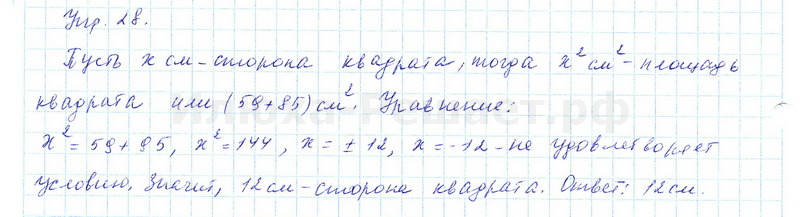 Упр. 28.
Пусть x см - сторона квадрата, тогда x² см² - площадь
квадрата или (59+85) см². Уравнение:
x² = 59+95, x² = 144, x = ± 12, x = -12 - не удовлетворяет
условию. Значит, 12 см - сторона квадрата. Ответ: 12 см.
Илюха-Решает.рф